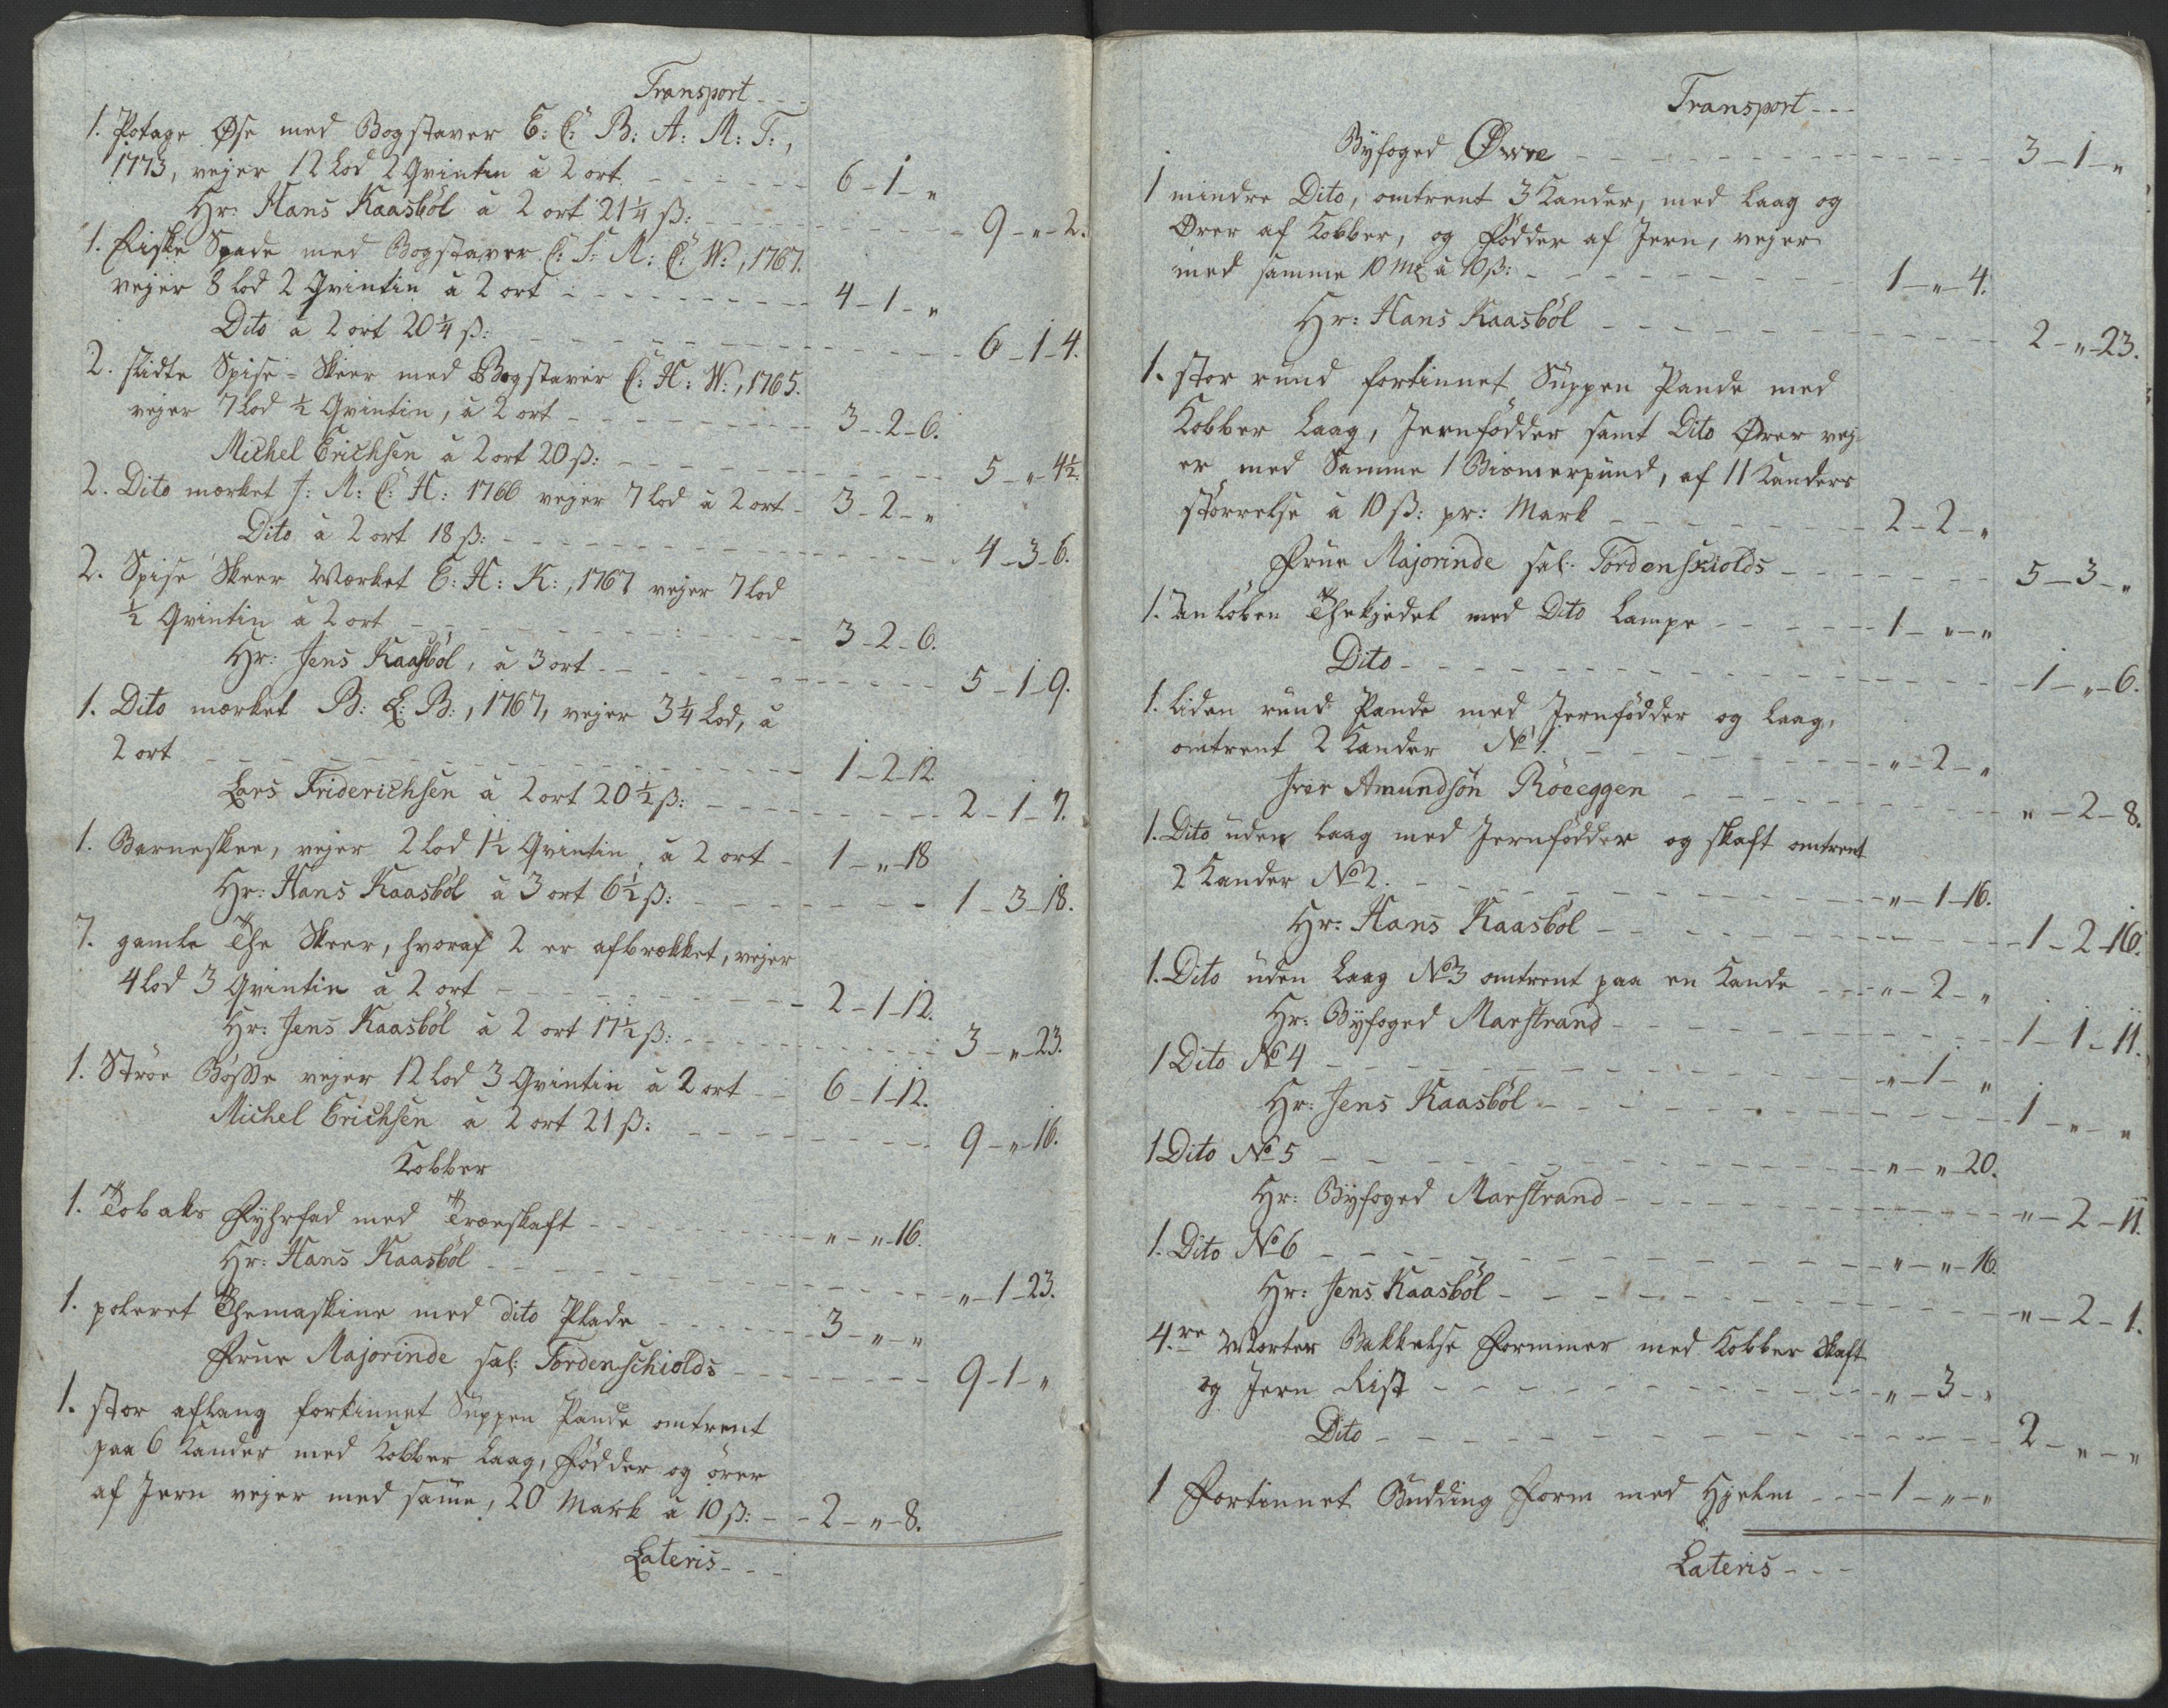 Transport - - -
1. Potage Øse med Bogstaver E: C: B: A: M: T:,
1773, vejer 12 Lod 2 Qvintin à 2 ort - - - 6 - 1 - "
Hr: Hans Kaasböl à 2 ort 21 1/4 ß: - - - 9 - " - 2.
1. Fiske Spade med Bogstaver C: S: M: C: W:, 1767.
vejer 8 lod 2 Qvintin à 2 ort - - - 4 - 1 - "
Dito à 2 ort 20 1/4 ß: - - - 6 - 1 - 4.
2. slidte Spise-Skeer med Bogstaver C: H: W:, 1765.
vejer 7 Lod 1/2 Qvintin, à 2 ort - - - 3 - 2 - 6.
Michel Erichsen à 2 ort 20 ß: - - - 5 - " - 4 1/2.
2. Dito mærket J: M: C: H: 1766 vejer 7 Lod à 2 ort - 3 - 2 - "
Dito à 2 ort 18 ß: - - - 4 - 3 - 6.
2. Spise Skeer Mærket E: H: K:, 1767 vejer 7 Lod
1/2 Qvintin à 2 ort - - - 3 - 2 - 6.
Hr: Jens Kaasböl, à 3 ort - - - 5 - 1 - 9.
1. Dito mærket B: E: B:, 1767, vejer 3 1/4 Lod, à
2 ort - - - 1 - 2 - 12.
Lars Friderichsen à 2 ort 20 1/2 ß: - - - 2 - 1 - 7.
1. Barneskee, vejer 2 Lod 1 1/2 Qvintin, à 2 ort - 1 - " - 18
Hr: Hans Kaasböl à 3 ort 6 1/2 ß: - - - 1 - 3 - 18.
7. gamle The Skeer, hvoraf 2 er afbrækket, vejer
4 lod 3 Qvintin à 2 ort - - - 2 - 1 - 12.
Hr: Jens Kaasböl à 2 ort 17 1/2 ß: - - - 3 - " - 23.
1. Ströe Bösse vejer 12 Lod 3 Qvintin à 2 ort - - 6 - 1 - 12.
Michel Erichsen à 2 ort 21 ß: - - - 9 - " - 16.
Kobber
1. Tobaks Fyhrfad med Træeskaft - - - " - " - 16.
Hr: Hans Kaasböl - - - " - 1 - 23.
1. poleret Themaskine med dito Plade - - - 3 - " - "
Frue Majorinde sal: Tordenschiolds - - - 9 - 1 - "
1. stor aflang fortinnet Suppen Pande omtrent
paa 6 Kander med Kobber Laag, Födder og örer
af Jern vejer med same, 20 Mark à 10 ß: - - 2 - " - 8.
Lateris - - -
Transport - - -
Byfoged Øwre - - - 3 - 1 - "
1 mindre Dito, omtrent 3 Kander, med Laag og
Ører af Kobber, og Födder af Jern, vejer
med samme 10 Mk à 10 ß: - - - 1 - " - 4.
Hr: Hans Kaasböl - - - 2 - " - 23.
1. stor rund fortinnet Suppen Pande med
Kobber Laag, Jernfödder samt Dito Ører vej-
er med Samme 1 Bismerpund, af 11 Kanders
störrelse à 10 ß: pr: Mark - - - 2 - 2 - "
Frue Majorinde sal: Tordenskiolds - - - 5 - 3 - "
1. Thekjedel med Dito Lampe - - - 1 - " - "
Dito - - - 1 - " - 6.
1. liden rund Pande med Jernfödder og Laag,
omtrent 2 Kander No 1. - - - " - 2 - "
Iver Amundsön Röeeggen - - - " - 2 - 8.
1. Dito uden Laag med Jernfödder og skaft omtrent
2 Kander No 2. - - - " - 1 - 16.
Hr: Hans Kaasböl - - - 1 - 2 - 16.
1. Dito uden Laag No 3 omtrent paa en Kande - - - " - 2 - "
Hr: Byfoged Marstrand - - - 1 - 1 - 11.
1 Dito No 4 - - - " - 1 - "
Hr: Jens Kaasböl - - - 1 - " - "
1 Dito No 5 - - - " - " 20.
Hr: Byfoged Marstrand - - - " - 2 - 11.
1. Dito No 6 - - - " - " - 16.
Hr: Jens Kaasböl - - - " - 2 - 1.
4.re Morter Bakkelse Formmer med Kobber Skaft
og Jern Rist - - - " - 3 - "
Dito - - - 2 - " - "
1 Fortinnet Budding Form med Hjelm - - - 1 - " - "
Lateris - - -